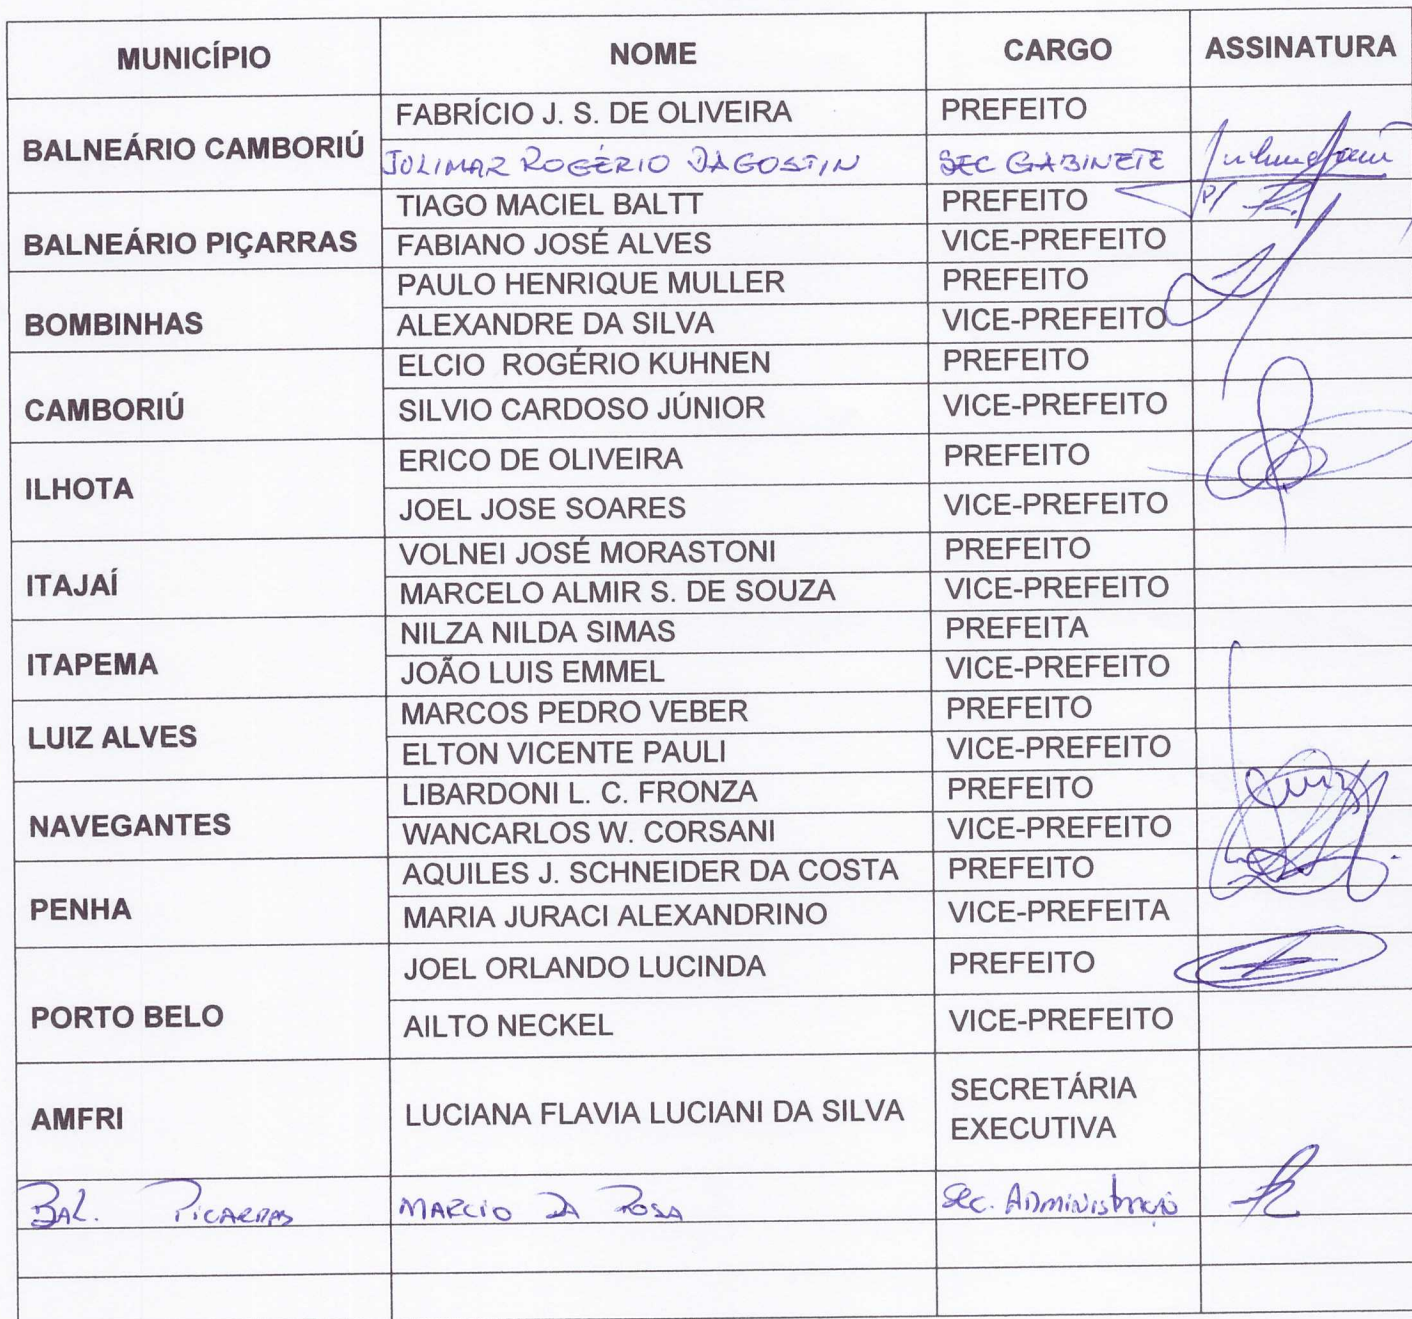 MUNICÍPIO NOME CARGO ASSINATURA
BALNEÁRIO CAMBORIÚ
FABRÍCIO J. S. DE OLIVEIRA PREFEITO
JOLIMAR ROGÉRIO DAGOSTIN SEC GABINETE
BALNEÁRIO PIÇARRAS
TIAGO MACIEL BALTT PREFEITO P/
FABIANO JOSÉ ALVES VICE-PREFEITO
BOMBINHAS
PAULO HENRIQUE MULLER PREFEITO
ALEXANDRE DA SILVA VICE-PREFEITO
CAMBORIÚ
ELCIO ROGÉRIO KUHNEN PREFEITO
SILVIO CARDOSO JÚNIOR VICE-PREFEITO
ILHOTA
ERICO DE OLIVEIRA PREFEITO
JOEL JOSE SOARES VICE-PREFEITO
ITAJAÍ
VOLNEI JOSÉ MORASTONI PREFEITO
MARCELO ALMIR S. DE SOUZA VICE-PREFEITO
ITAPEMA
NILZA NILDA SIMAS PREFEITA
JOÃO LUIS EMMEL VICE-PREFEITO
LUIZ ALVES
MARCOS PEDRO VEBER PREFEITO
ELTON VICENTE PAULI VICE-PREFEITO
NAVEGANTES
LIBARDONI L. C. FRONZA PREFEITO
WANCARLOS W. CORSANI VICE-PREFEITO
PENHA
AQUILES J. SCHNEIDER DA COSTA PREFEITO
MARIA JURACI ALEXANDRINO VICE-PREFEITA
PORTO BELO
JOEL ORLANDO LUCINDA PREFEITO
AILTO NECKEL VICE-PREFEITO
AMFRI LUCIANA FLAVIA LUCIANI DA SILVA SECRETÁRIA
EXECUTIVA
BAL. PICARRAS MARCIO DA ROSA SEC. ADMINISTRAÇÃO